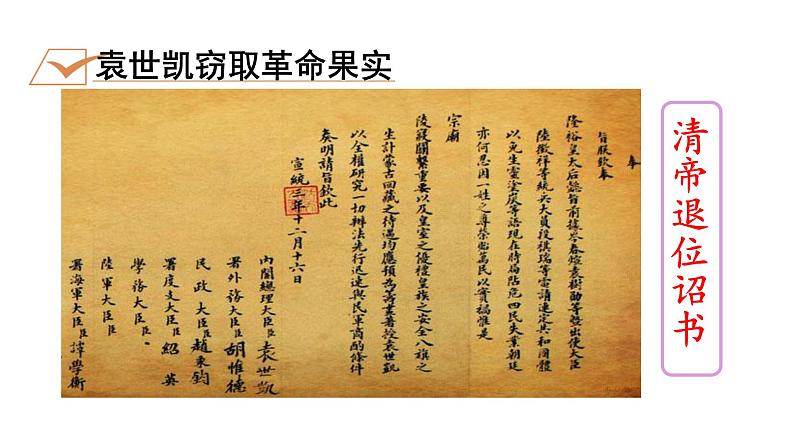 袁世凯窃取革命果实
奉
旨朕欽奉
隆裕皇太后懿旨前據岑春煊袁樹勛等暨出使大臣
陸徵祥等統兵大員段祺瑞等電請速定共和國體
以免生靈塗炭等語現在時局阽危四民失業朝廷
亦何忍因一姓之尊榮貽萬民以實禍惟是
宗廟
陵寢關繫重要以及皇室之優禮皇族之安全八旗之
生計蒙古回藏之待遇均應預為籌畫著授袁世凱
以全權研究一切辦法先行迅速與民軍商酌條件
奏明請旨欽此
宣統三年十二月十六日
內閣總理大臣臣袁世凱
署外務大臣臣胡惟德
民政大臣臣趙秉鈞
署度支大臣臣紹英
學務大臣臣
陸軍大臣臣
署海軍大臣臣譚學衡
清帝退位诏书